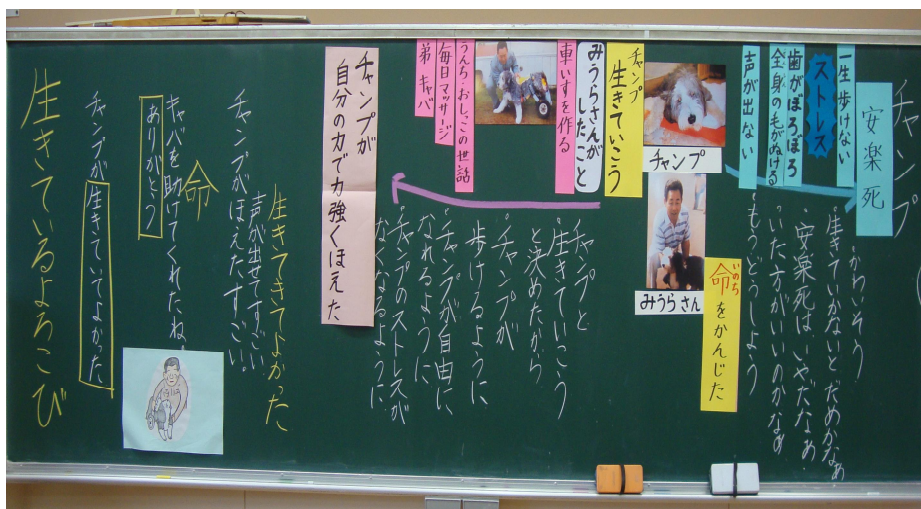 チャンプ
安楽死
一生歩けない
ストレス
歯がぼろぼろ
全身の毛がぬける
声が出ない
・かわいそう
生きていかないとだめかなぁ
・安楽死はいやだなぁ・
いた方がいいのかなぁ
・もうどうしよう
チャンプ
みうらさん
命をかんじた
いのち
チャンプ
生きていこう
みうらさんが
したこと
車いすを作る
うんち・おしっこの世話
毎日マッサージ
弟 キャバ
チャンプと
生きていこう
と決めたから
・チャンプが
歩けるように
・チャンプが自由に
なれるように
・チャンプのストレスが
なくなるように
チャンプが
自分の力で力強くほえた
生きてきてよかった
声が出せてすごい
チャンプが
ほえたすごい。
命
キャバを助けてくれたね。
ありがとう
チャンプが生きていてよかった
生きているよろこび